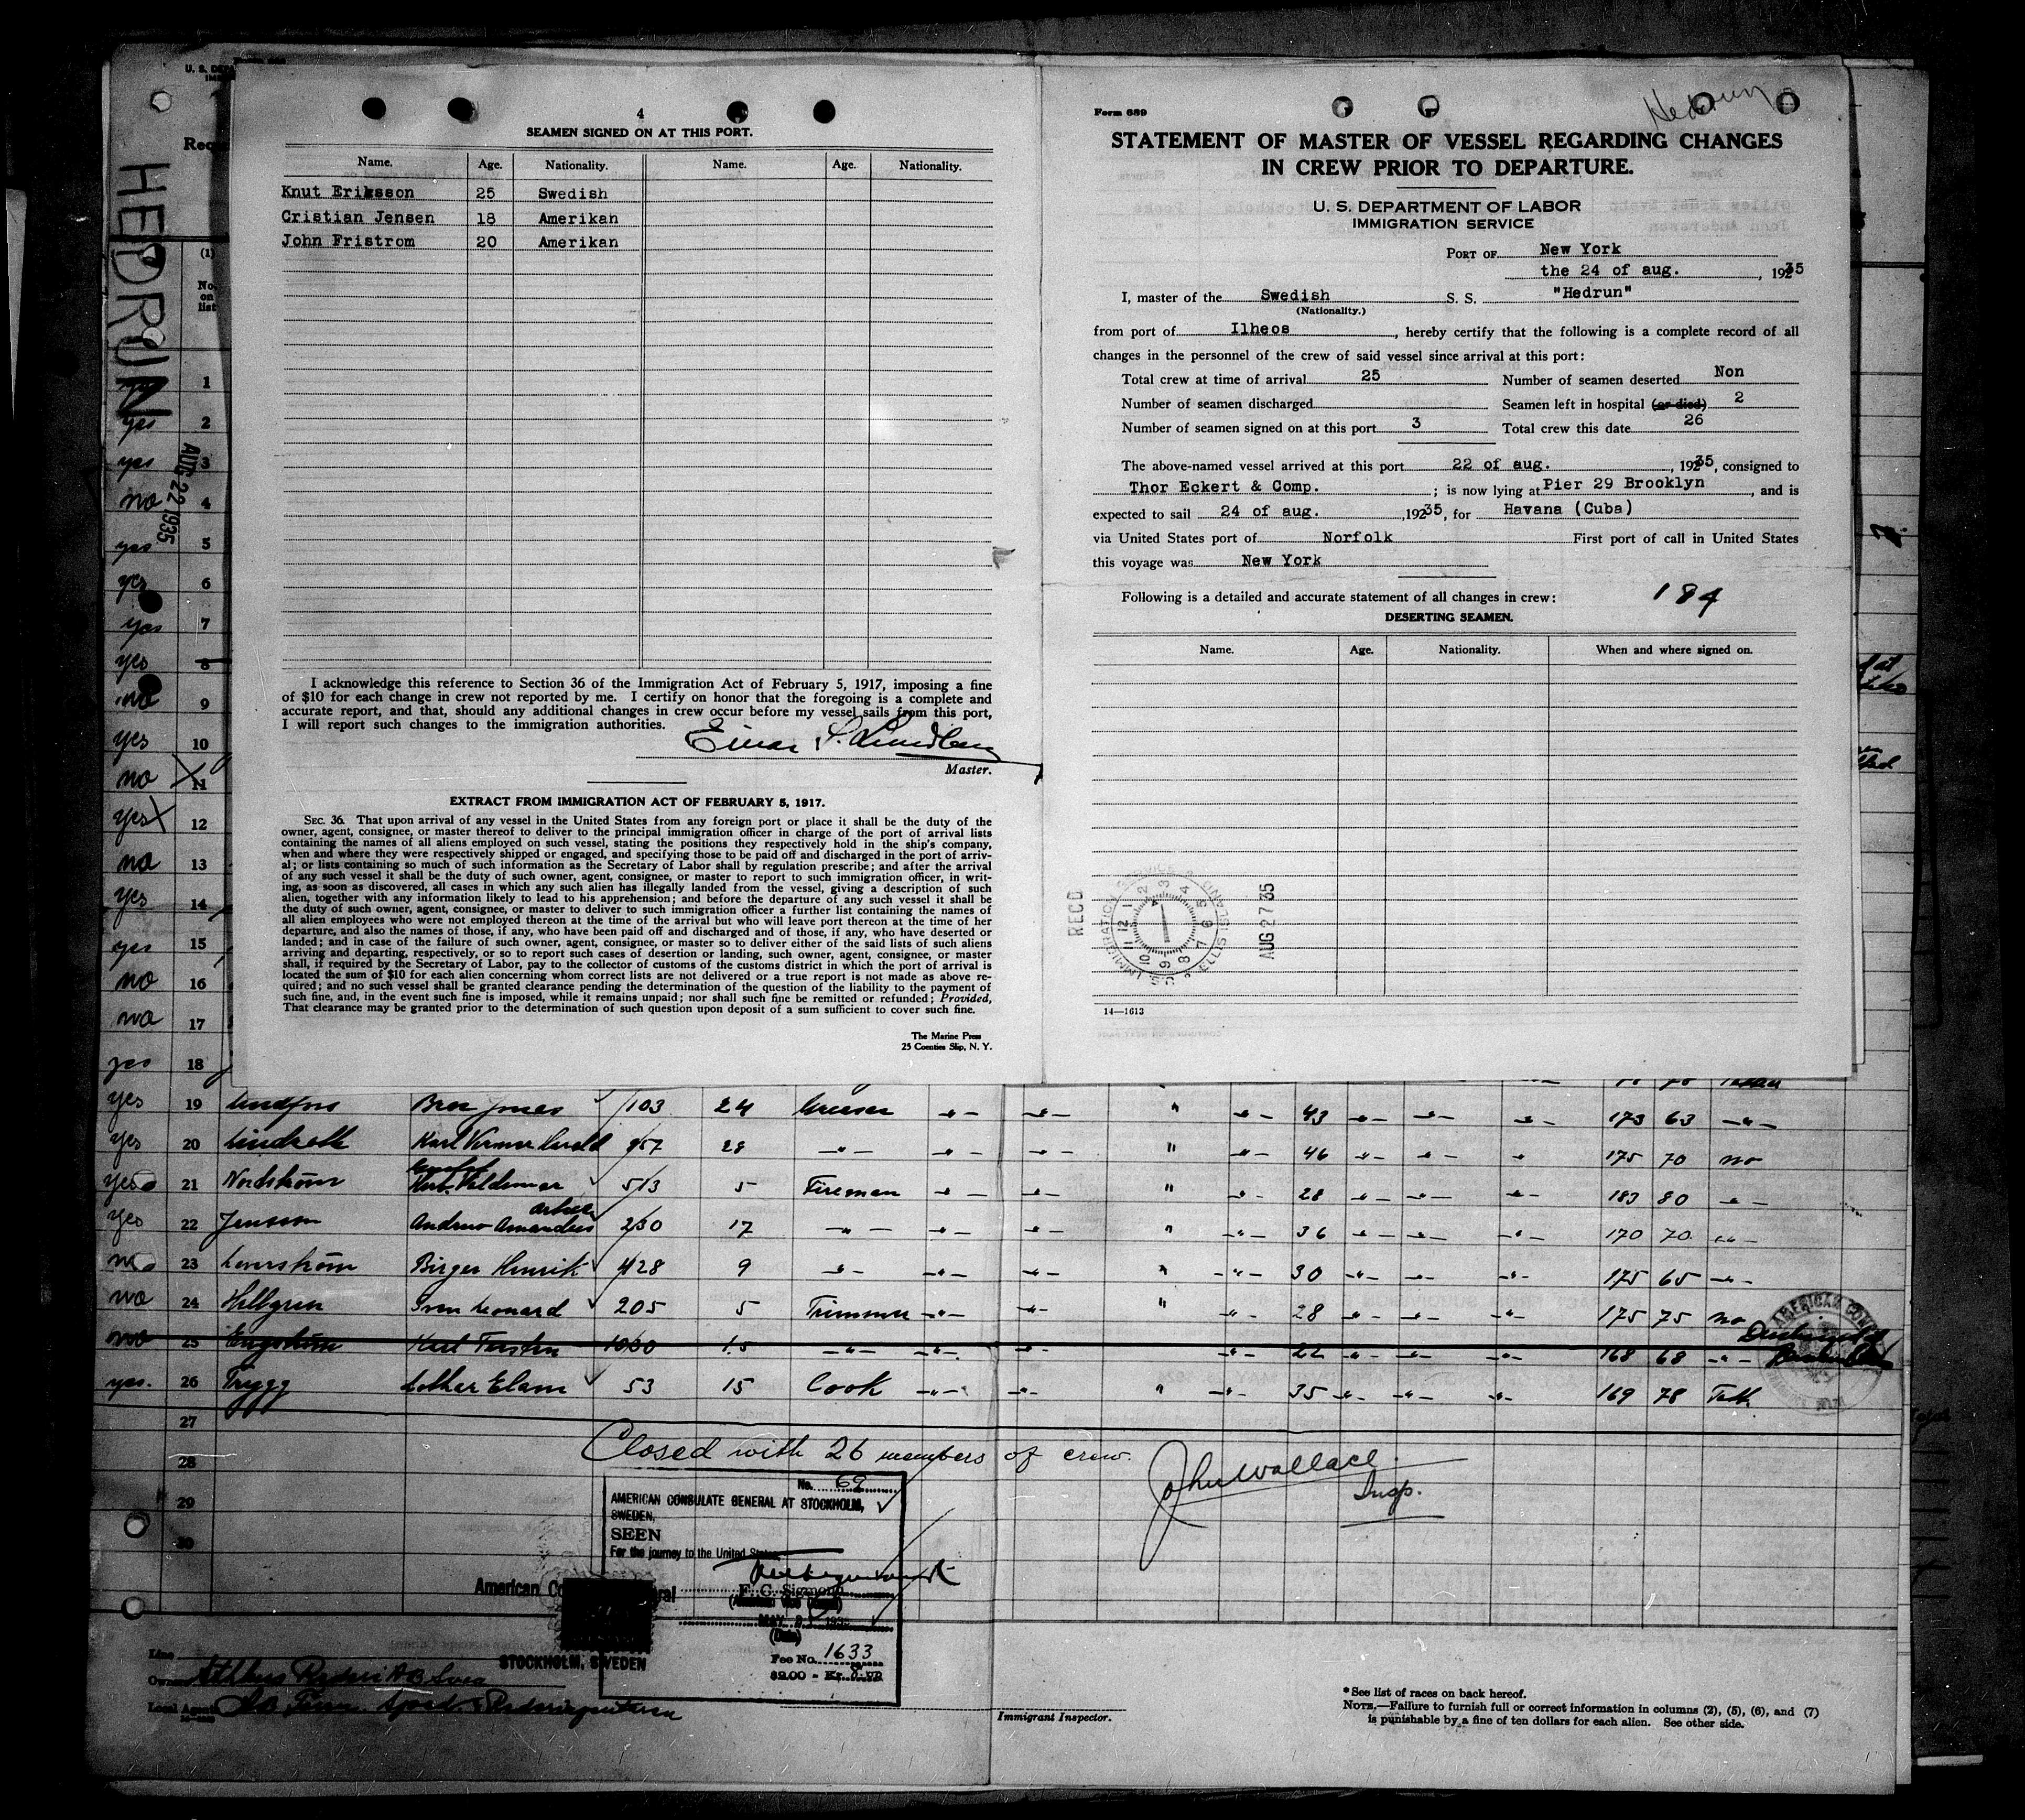 HEDRUN
AUG 22 1935
4
SEAMEN SIGNED ON AT THIS PORT.
Name. Age. Nationality. Name. Age. Nationality.
Knut Eriksson 25 Swedish
Cristian Jensen 18 Amerikan
John Fristrom 20 Amerikan
I acknowledge this reference to Section 36 of the Immigration Act of February 5, 1917, imposing a fine
of $10 for each change in crew not reported by me. I certify on honor that the foregoing is a complete and
accurate report, and that, should any additional changes in crew occur before my vessel sails from this port,
I will report such changes to the immigration authorities.
Master.
EXTRACT FROM IMMIGRATION ACT OF FEBRUARY 5, 1917.
SEC. 36. That upon arrival of any vessel in the United States from any foreign port or place it shall be the duty of the
owner, agent, consignee, or master thereof to deliver to the principal immigration officer in charge of the port of arrival lists
containing the names of all aliens employed on such vessel, stating the positions they respectively hold in the ship's company,
when and where they were respectively shipped or engaged, and specifying those to be paid off and discharged in the port of arriv-
al; or lists containing so much of such information as the Secretary of Labor shall by regulation prescribe; and after the arrival
of any such vessel it shall be the duty of such owner, agent, consignee, or master to report to such immigration officer, in writ-
ing, as soon as discovered, all cases in which any such alien has illegally landed from the vessel, giving a description of such
alien, together with any information likely to lead to his apprehension; and before the departure of any such vessel it shall be
the duty of such owner, agent, consignee, or master to deliver to such immigration officer a further list containing the names of
all alien employees who were not employed thereon at the time of the arrival but who will leave port thereon at the time of her
departure, and also the names of those, if any, who have been paid off and discharged and of those, if any, who have deserted or
landed; and in case of the failure of such owner, agent, consignee, or master so to deliver either of the said lists of such aliens
arriving and departing, respectively, or so to report such cases of desertion or landing, such owner, agent, consignee, or master
shall, if required by the Secretary of Labor, pay to the collector of customs of the customs district in which the port of arrival is
located the sum of $10 for each alien concerning whom correct lists are not delivered or a true report is not made as above re-
quired; and no such vessel shall be granted clearance pending the determination of the question of the liability to the payment of
such fine, and, in the event such fine is imposed, while it remains unpaid; nor shall such fine be remitted or refunded; Provided,
That clearance may be granted prior to the determination of such question upon deposit of a sum sufficient to cover such fine.
The Marine Press
25 Coenties Slip, N. Y.
Form 689
Hedrun
STATEMENT OF MASTER OF VESSEL REGARDING CHANGES
IN CREW PRIOR TO DEPARTURE.
U. S. DEPARTMENT OF LABOR
IMMIGRATION SERVICE
PORT OF New York
the 24 of aug., 1935
I, master of the Swedish S. S. "Hedrun"
(Nationality.)
from port of Ilheos, hereby certify that the following is a complete record of all
changes in the personnel of the crew of said vessel since arrival at this port:
Total crew at time of arrival 25 Number of seamen deserted Non
Number of seamen discharged Seamen left in hospital (or died) 2
Number of seamen signed on at this port 3 Total crew this date 26
The above-named vessel arrived at this port 22 of aug., 1935, consigned to
Thor Eckert & Comp.; is now lying at Pier 29 Brooklyn, and is
expected to sail 24 of aug., 1935, for Havana (Cuba)
via United States port of Norfolk First port of call in United States
this voyage was New York
Following is a detailed and accurate statement of all changes in crew: 184
DESERTING SEAMEN.
Name. Age. Nationality. When and where signed on.
RECD AUG 27 35
14—1613
(1)
No. on list
1
yes 2
yes 3
no 4
yes 5
yes 6
yes 7
yes 8
no 9
yes 10
no 11
yes 12
no 13
yes 14
yes 15
no 16
no 17
yes 18
yes 19 103 24 " 43 173 63
yes 20 28 " 46 175 70 no
yes 21 Nordström 513 5 Fireman " 28 183 80
yes 22 Jansson 17 " 36 170 70
no 23 Birger Henrik 428 9 " 30 175 65
no 24 Hellgren Sven Leonard 205 5 Trimmer " 28 175 75 no
no 25 Engström Karl Torsten 22 168 68
yes. 26 Trygg 53 15 Cook " 35 169 78
27
28 Closed with 26 members of crew. John Wallace
Insp.
29
30
No. 69
AMERICAN CONSULATE GENERAL AT STOCKHOLM,
SWEDEN,
SEEN
For the journey to the United States
(Date)
Fee No. 1633
STOCKHOLM, SWEDEN
Line
Immigrant Inspector.
*See list of races on back hereof.
NOTE.—Failure to furnish full or correct information in columns (2), (5), (6), and (7)
is punishable by a fine of ten dollars for each alien. See other side.